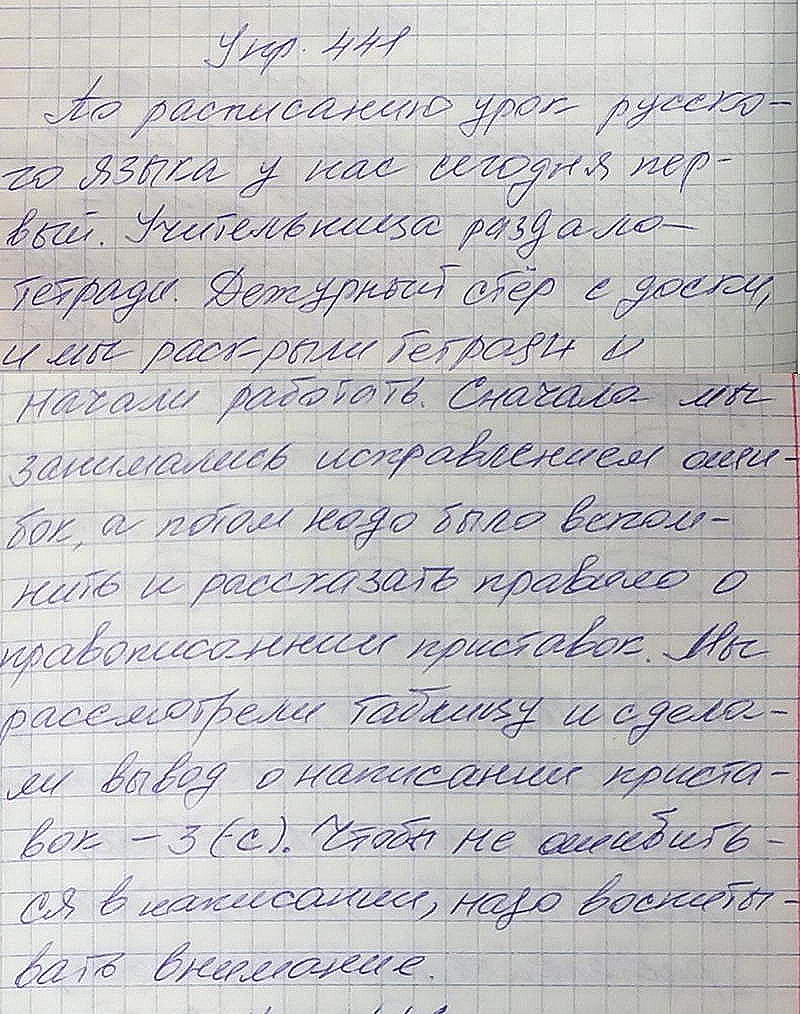 Упр. 441
По расписанию урок русско-
го языка у нас сегодня пер-
вый. Учительница раздала
тетради. Дежурный стёр с доски,
и мы раск-рыли тетради и
начали работать. Сначала мы
занимались исправлением оши-
бок, а потом надо было вспом-
нить и рассказать правило о
правописании приставок. Мы
рассмотрели таблицу и сдела-
ли вывод о написании приста-
вок -з (-с). Чтобы не ошибить-
ся в написании, надо воспиты-
вать внимание.